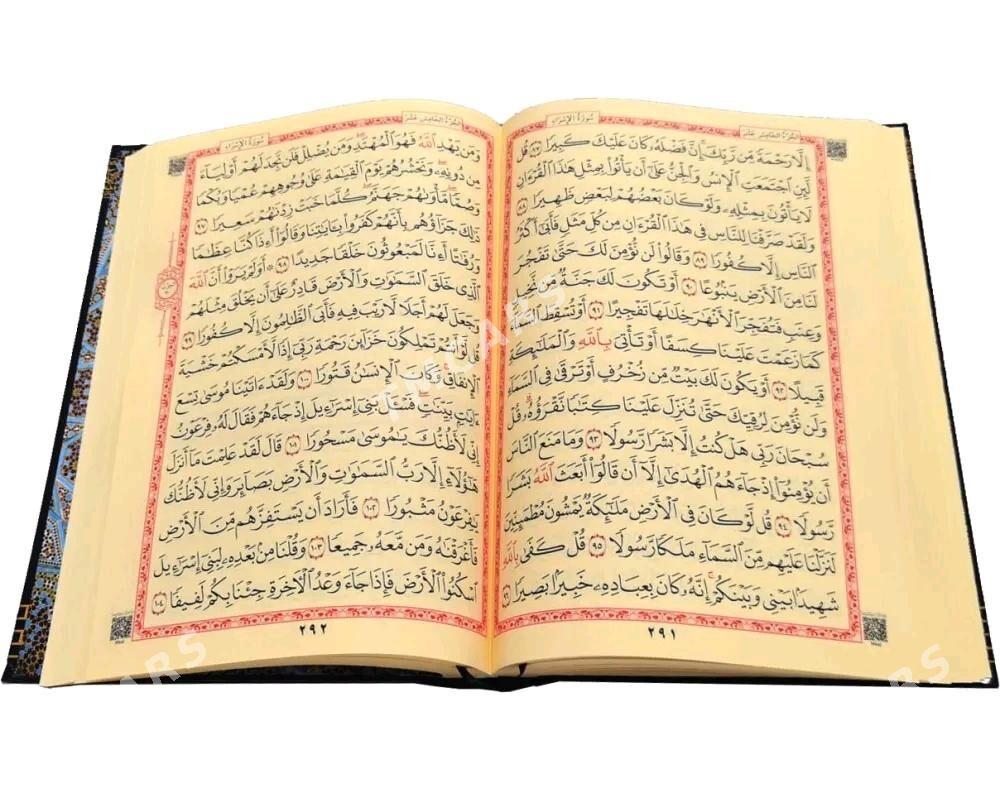 الجزء الخامس عشر
سورة الإسراء
إِلَّا رَحْمَةً مِّن رَّبِّكَ إِنَّ فَضْلَهُۥ كَانَ عَلَيْكَ كَبِيرًا ٨٧ قُل
لَّئِنِ ٱجْتَمَعَتِ ٱلْإِنسُ وَٱلْجِنُّ عَلَىٰٓ أَن يَأْتُوا۟ بِمِثْلِ هَٰذَا ٱلْقُرْءَانِ
لَا يَأْتُونَ بِمِثْلِهِۦ وَلَوْ كَانَ بَعْضُهُمْ لِبَعْضٍ ظَهِيرًا ٨٨
وَلَقَدْ صَرَّفْنَا لِلنَّاسِ فِى هَٰذَا ٱلْقُرْءَانِ مِن كُلِّ مَثَلٍ فَأَبَىٰٓ أَكْثَرُ
ٱلنَّاسِ إِلَّا كُفُورًا ٨٩ وَقَالُوا۟ لَن نُّؤْمِنَ لَكَ حَتَّىٰ تَفْجُرَ
لَنَا مِنَ ٱلْأَرْضِ يَنۢبُوعًا ٩٠ أَوْ تَكُونَ لَكَ جَنَّةٌ مِّن نَّخِيلٍ
وَعِنَبٍ فَتُفَجِّرَ ٱلْأَنْهَٰرَ خِلَٰلَهَا تَفْجِيرًا ٩١ أَوْ تُسْقِطَ ٱلسَّمَآءَ
كَمَا زَعَمْتَ عَلَيْنَا كِسَفًا أَوْ تَأْتِىَ بِٱللَّهِ وَٱلْمَلَٰٓئِكَةِ
قَبِيلًا ٩٢ أَوْ يَكُونَ لَكَ بَيْتٌ مِّن زُخْرُفٍ أَوْ تَرْقَىٰ فِى ٱلسَّمَآءِ
وَلَن نُّؤْمِنَ لِرُقِيِّكَ حَتَّىٰ تُنَزِّلَ عَلَيْنَا كِتَٰبًا نَّقْرَؤُهُۥ قُلْ
سُبْحَانَ رَبِّى هَلْ كُنتُ إِلَّا بَشَرًا رَّسُولًا ٩٣ وَمَا مَنَعَ ٱلنَّاسَ
أَن يُؤْمِنُوٓا۟ إِذْ جَآءَهُمُ ٱلْهُدَىٰٓ إِلَّآ أَن قَالُوٓا۟ أَبَعَثَ ٱللَّهُ بَشَرًا
رَّسُولًا ٩٤ قُل لَّوْ كَانَ فِى ٱلْأَرْضِ مَلَٰٓئِكَةٌ يَمْشُونَ مُطْمَئِنِّينَ
لَنَزَّلْنَا عَلَيْهِم مِّنَ ٱلسَّمَآءِ مَلَكًا رَّسُولًا ٩٥ قُلْ كَفَىٰ بِٱللَّهِ
شَهِيدًۢا بَيْنِى وَبَيْنَكُمْ إِنَّهُۥ كَانَ بِعِبَادِهِۦ خَبِيرًۢا بَصِيرًا ٩٦
٢٩١
الجزء الخامس عشر
سورة الإسراء
وَمَن يَهْدِ ٱللَّهُ فَهُوَ ٱلْمُهْتَدِ وَمَن يُضْلِلْ فَلَن تَجِدَ لَهُمْ أَوْلِيَآءَ
مِن دُونِهِۦ وَنَحْشُرُهُمْ يَوْمَ ٱلْقِيَٰمَةِ عَلَىٰ وُجُوهِهِمْ عُمْيًا وَبُكْمًا
وَصُمًّا مَّأْوَىٰهُمْ جَهَنَّمُ كُلَّمَا خَبَتْ زِدْنَٰهُمْ سَعِيرًا ٩٧
ذَٰلِكَ جَزَآؤُهُم بِأَنَّهُمْ كَفَرُوا۟ بِـَٔايَٰتِنَا وَقَالُوٓا۟ أَءِذَا كُنَّا عِظَٰمًا
وَرُفَٰتًا أَءِنَّا لَمَبْعُوثُونَ خَلْقًا جَدِيدًا ٩٨ ۞ أَوَلَمْ يَرَوْا۟ أَنَّ ٱللَّهَ
ٱلَّذِى خَلَقَ ٱلسَّمَٰوَٰتِ وَٱلْأَرْضَ قَادِرٌ عَلَىٰٓ أَن يَخْلُقَ مِثْلَهُمْ
وَجَعَلَ لَهُمْ أَجَلًا لَّا رَيْبَ فِيهِ فَأَبَى ٱلظَّٰلِمُونَ إِلَّا كُفُورًا ٩٩
قُل لَّوْ أَنتُمْ تَمْلِكُونَ خَزَآئِنَ رَحْمَةِ رَبِّىٓ إِذًا لَّأَمْسَكْتُمْ خَشْيَةَ
ٱلْإِنفَاقِ وَكَانَ ٱلْإِنسَٰنُ قَتُورًا ١٠٠ وَلَقَدْ ءَاتَيْنَا مُوسَىٰ تِسْعَ
ءَايَٰتٍۭ بَيِّنَٰتٍ فَسْـَٔلْ بَنِىٓ إِسْرَٰٓءِيلَ إِذْ جَآءَهُمْ فَقَالَ لَهُۥ فِرْعَوْنُ
إِنِّى لَأَظُنُّكَ يَٰمُوسَىٰ مَسْحُورًا ١٠١ قَالَ لَقَدْ عَلِمْتَ مَآ أَنزَلَ
هَٰٓؤُلَآءِ إِلَّا رَبُّ ٱلسَّمَٰوَٰتِ وَٱلْأَرْضِ بَصَآئِرَ وَإِنِّى لَأَظُنُّكَ
يَٰفِرْعَوْنُ مَثْبُورًا ١٠٢ فَأَرَادَ أَن يَسْتَفِزَّهُم مِّنَ ٱلْأَرْضِ
فَأَغْرَقْنَٰهُ وَمَن مَّعَهُۥ جَمِيعًا ١٠٣ وَقُلْنَا مِنۢ بَعْدِهِۦ لِبَنِىٓ إِسْرَٰٓءِيلَ
ٱسْكُنُوا۟ ٱلْأَرْضَ فَإِذَا جَآءَ وَعْدُ ٱلْءَاخِرَةِ جِئْنَا بِكُمْ لَفِيفًا ١٠٤
٢٩٢